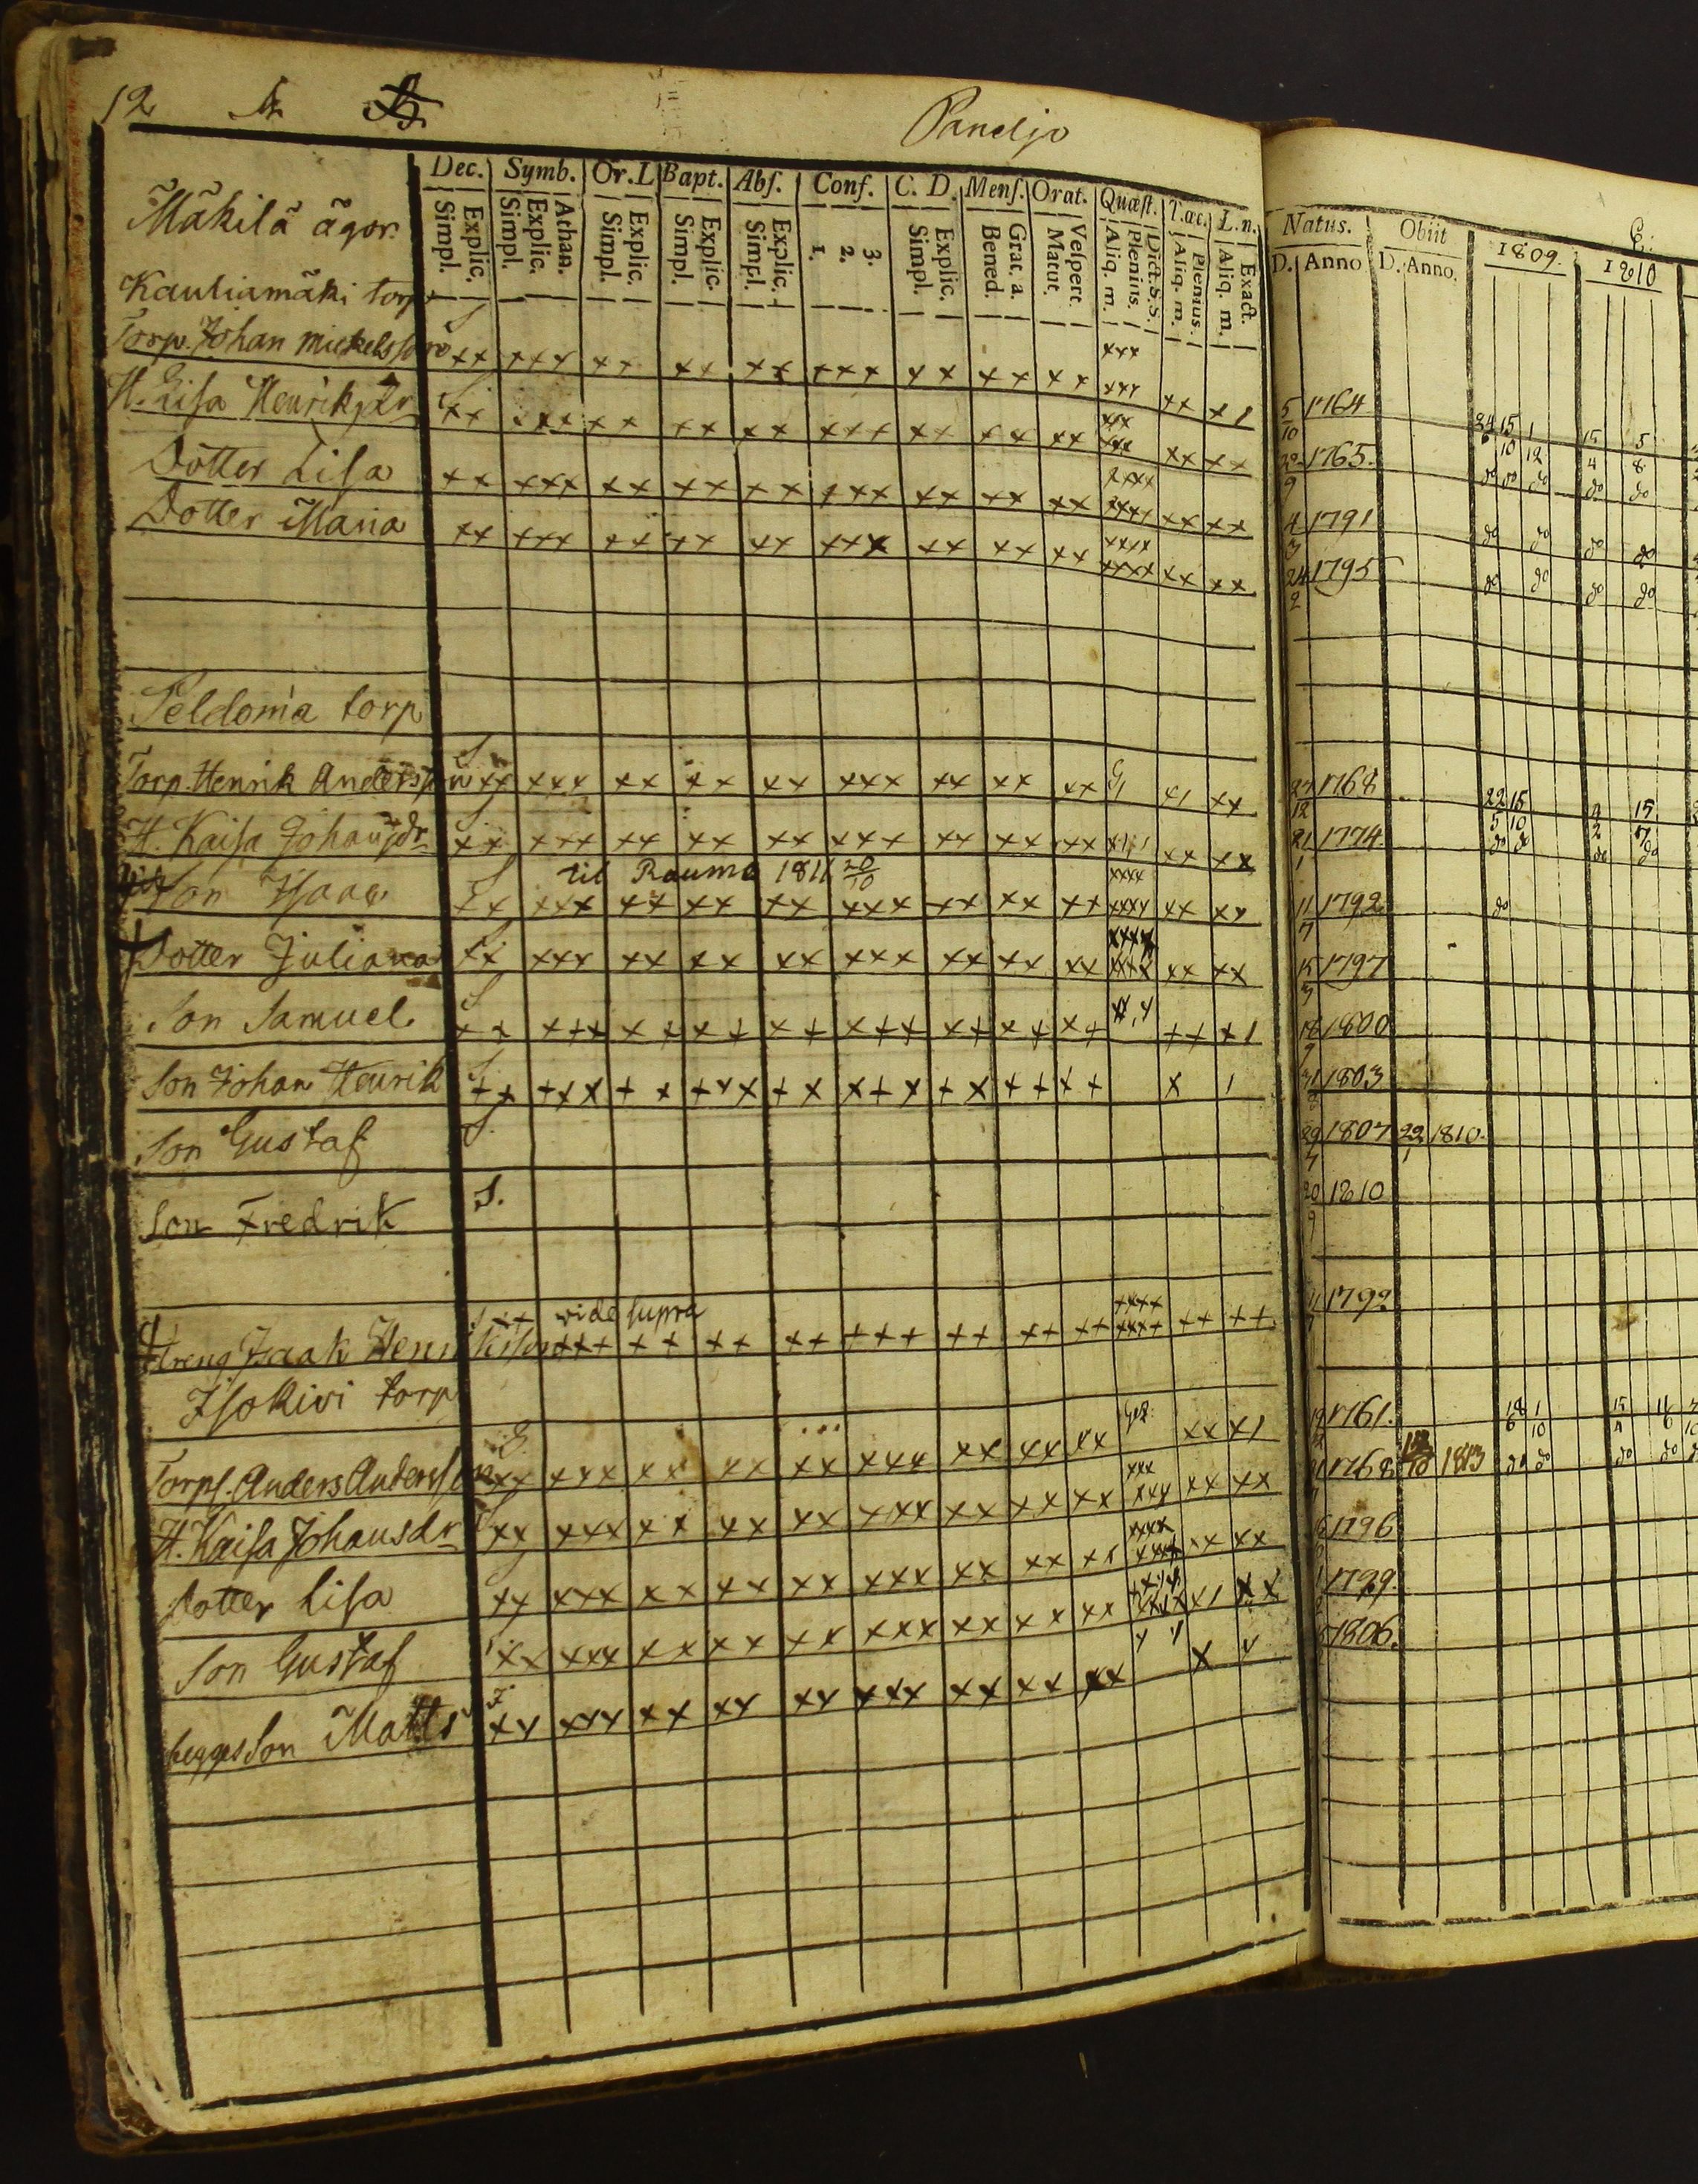 12
Paneljo
Dec. Symb. Or. L Bapt. Abſ. Conf. C. D. Menſ. Orat. Quæſt. T. ac. L. n. Natus. Obiit 1809. 1810
Simpl. Explic. Simpl. Explic. Athan. Simpl. Explic. Simpl. Explic. Simpl. Explic. 1. 2. 3. Simpl. Explic. Bened. Grat. a. Matut. Veſpert. Aliq. m. Plenius. Dict. S. S. Aliq. m. Plenius. Aliq. m. Exact. D. Anno D. Anno.
Mäkilä ägor.
Kauliamäki torp
Torp. Johan Mickelsson xx xxx xx xx xx xxx xx xx xx xxx xx x1 5/10 1764 24/6 15/10 1/12 15/4 5/8
H. Lisa Henriksdr xx xxx xx xx xx xxx xx xx xx xxx xx xx 1765. do do do do do
Dotter Lisa xx xxx xx xx xx xxx xx xx xx xxxx xx xx 4/3 1791 do do do do
Dotter Maria xx xxx xx xx xx xxx xx xx xx xxxx xx xx 24/2 1795 do do do do
Peldoma torp
Torp. Henrik Andersson xx xxx xx xx xx xxx xx xx xx xx 27/12 1768 22/5 15/10
H. Kaisa Johansdr xx xxx xx xx xx xxx xx xx xx xx xx 21/1 1774 do do do do
til Rauma 1811 20/10
Son Isaac xx xxx xx xx xx xxx xx xx xx xxxx xx xx 11/7 1792 do
Dotter Juliana xx xxx xx xx xx xxx xx xx xx xxxx xx xx 15/3 1797
Son Samuel xx xxx xx xx xx xxx xx xx xx xx x1 18/9 1800
Son Johan Henrik xx xxx xx xxx xx xxx xx xx xx x 1 1803
Son Gustaf 1807 1810.
Son Fredrik S. 20/9 1810
vide supra
Dreng Isaak Henrikssson xxx xx xx xx xxx xx xx xx xxxx xx xx 1792
Isokivi torp
Torp. Anders Andersson xx xxx xx xx xx xxx xx xx xx xx x1 1761. 18/6 1/10
H. Kaisa Johansdr xx xxx xx xx xx xxx xx xx xx xxx xx xx 1768 1813 do do do do
Dotter Lisa xx xxx xx xx xx xxx xx xx xx xxxx xx xx 1796
Son Gustaf xx xxx xx xx xx xxx xx xx xx xxxx x1 xx 1799.
Son Matts xx xxx xx xx xx xxx xx xx xx x x 1806.